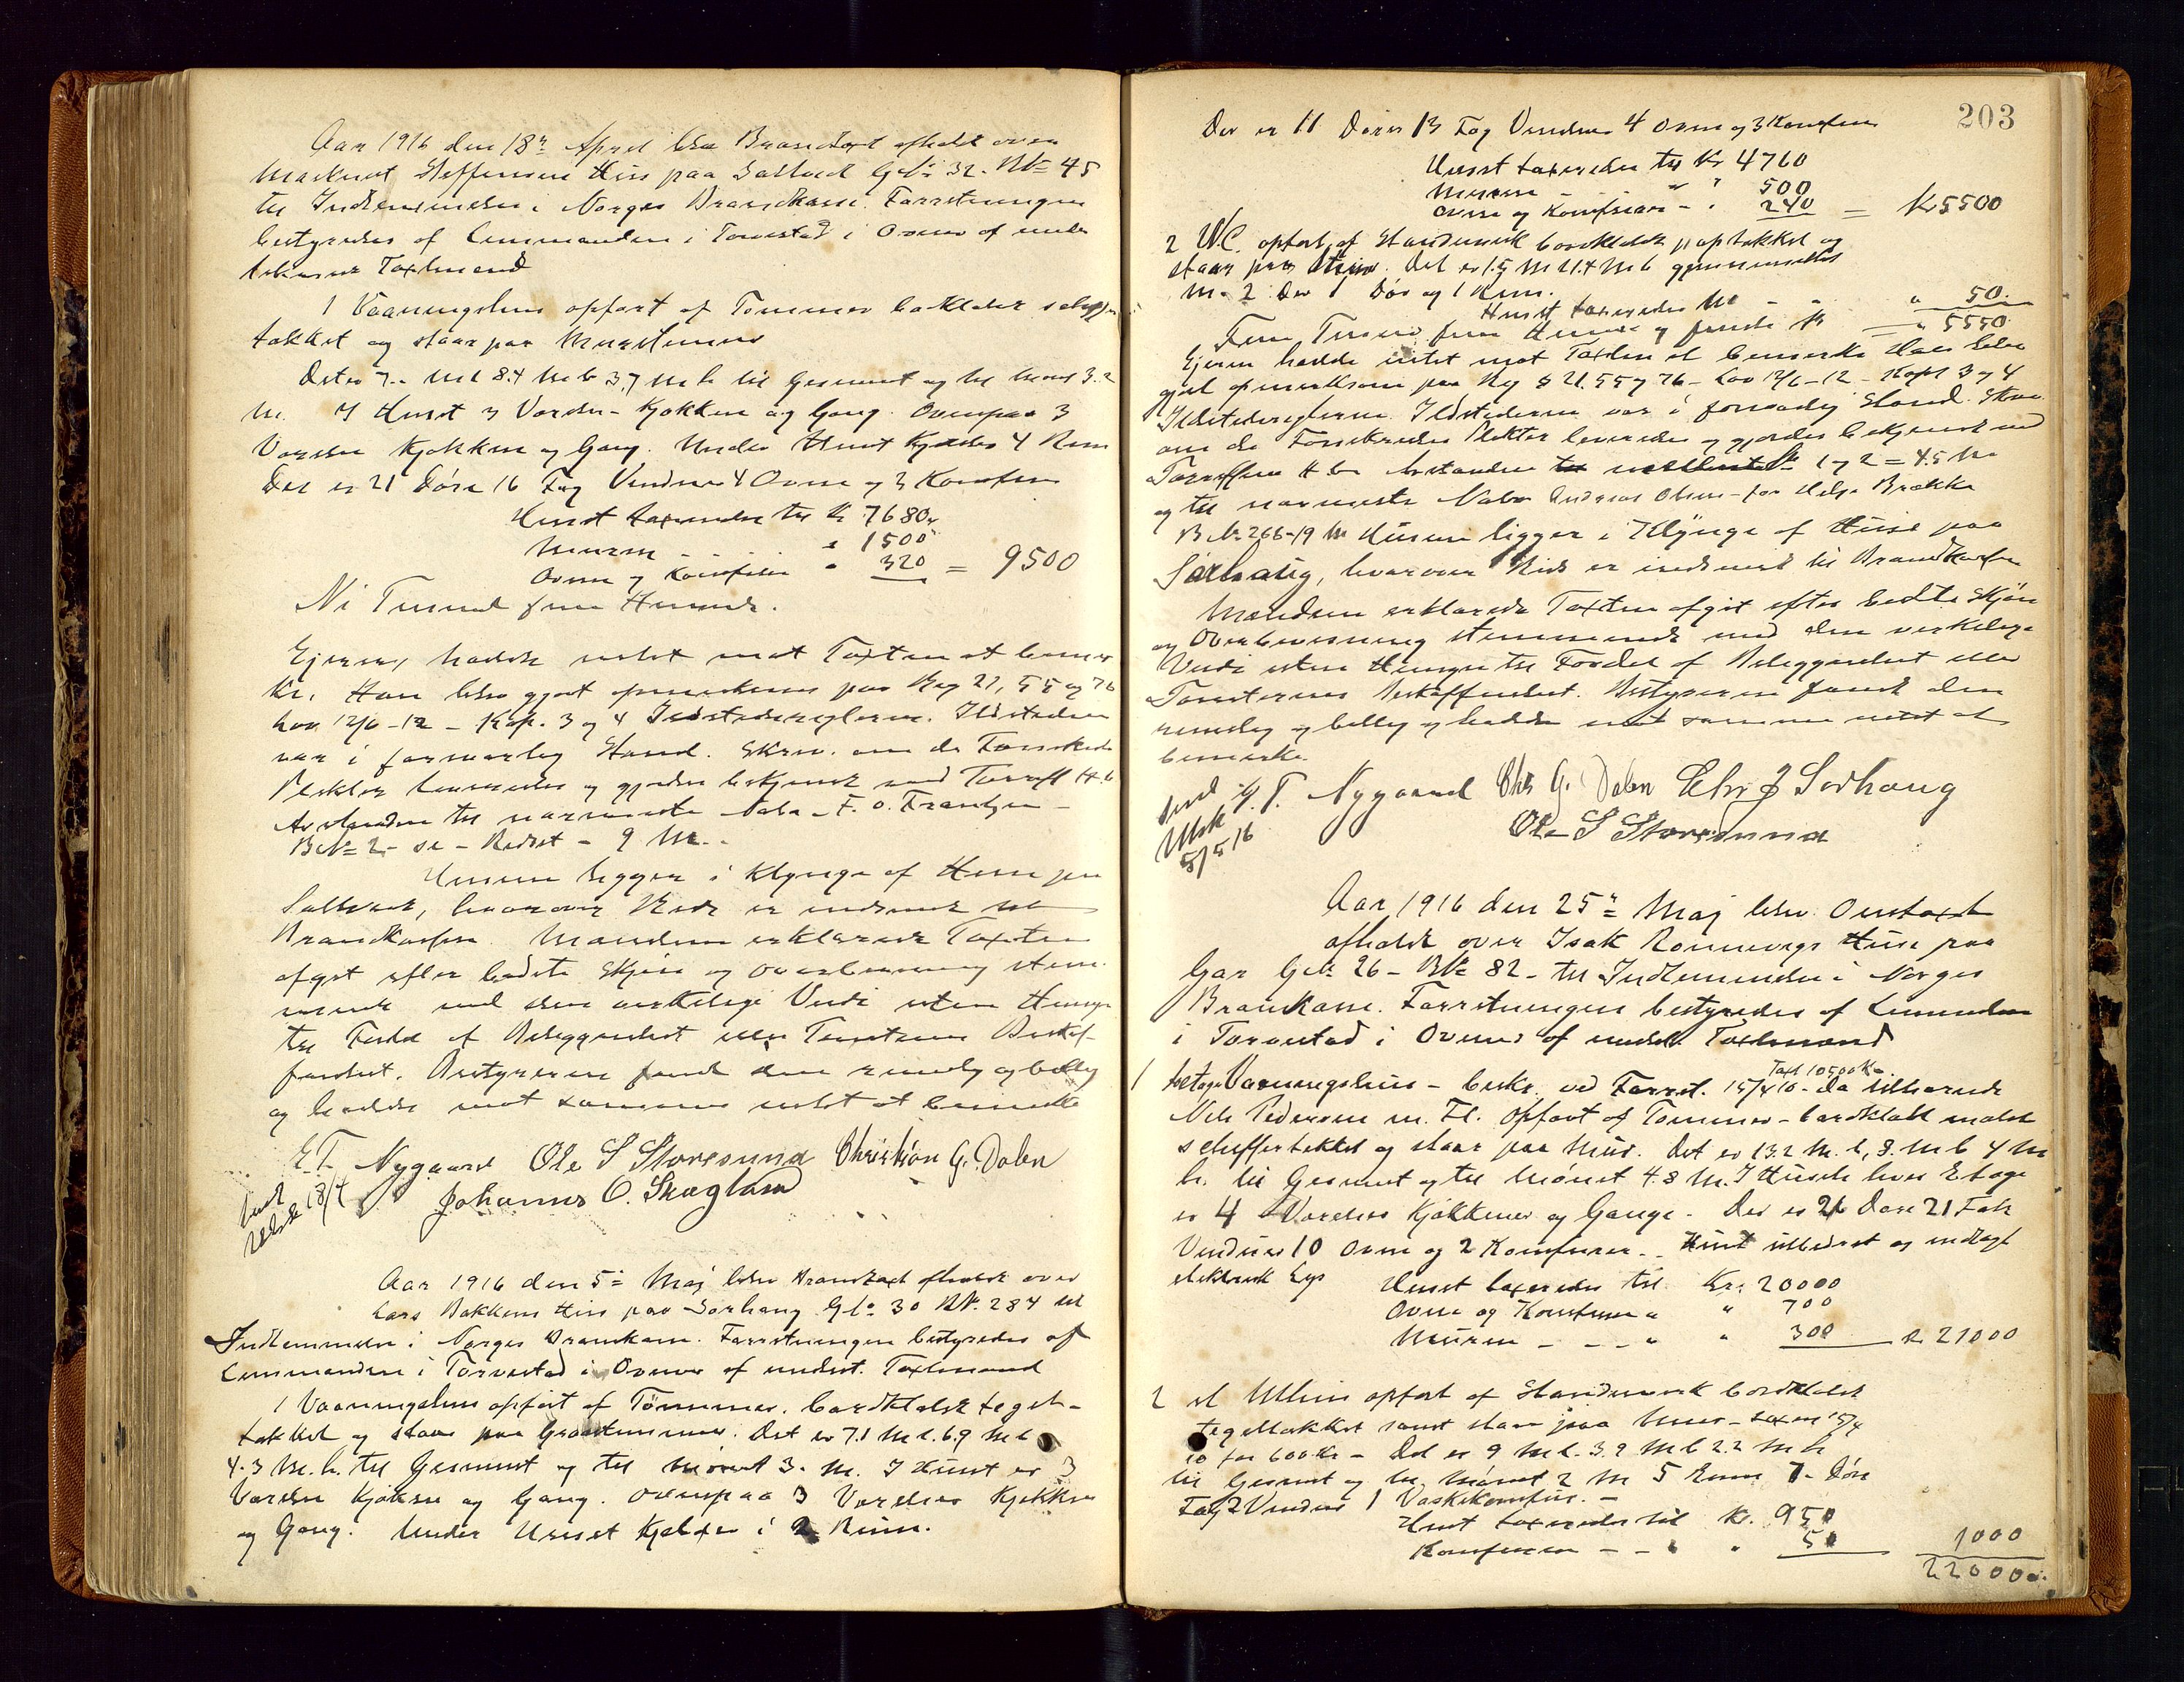 Aar 1916 den 18de April blev Brandtaxt afholdt over
Steffensen Hus paa Saltveit G.No 32. BNo 45
til Indlemmelse i Norges Brandkasse. Forretningen
bestyredes af Lensmanden i Torvestad i Overvær af under
tegnede Taxtmænd
1 Vaaningshus opført af Tømmer bordklædt
tækket og staar paa Mur
Det er 7.. M l 8.4 M b 3.7 M h til Gesimst og til Mønst 3.2
M. I Huset 3 Værelser Kjøkken og Gang. Ovenpaa 3
Værelser Kjøkken og Gang. Under Huset Kjelder 4 Rum
Det er 21 Døre 16 Fag Vinduer 4 Ovne og 3 Komfur
Huset taxeredes til Kr 7680
Muren - - - " 1500
Ovne og Komfur " 320 = 9500
Ni Tusend fem Hundrede.
Ejeren havde intet mot Taxten at bemær
ke. Han blev gjort opmerksom paa Reg 21, 55 og 76
Lov 12/6-12 - Kap. 3 og 4 Ildstedsreglerne. Ildstederne
var i forsvarlig Stand. Skriv. om de Forsikrede
Plikter leveredes og gjordes bekjendt med Tariff H.b
Avstanden til nærmeste Nabo - F. O. Frantzen -
BNo 2 - - 9 M..
Husene ligger i Klynge af Huse paa
Saltveit, hvorover Rids er indsendt til
Brandkassen. Mændene erklærede Taxten
afgit efter bedste Skjøn og Overbevisning stem
mende med den virkelige Verdi uten Hensyn
til Fordel af Beliggenhet eller Tomtens Beskaf-
fenhet. Bestyreren fandt den rimelig og billig
og havde mot samme intet at bemerke
E. T. Nygaard Ole S Storesund Christian G. Dalen
Johannes O. Skogland
Aar 1916 den 5te Maj blev Brandtaxt afholdt over
Lars Bakkens Hus paa Sørhaug G.No 30 BNo 284 til
Indlemmelse i Norges Brandkasse. Forretningen bestyredes af
Lensmanden i Torvestad i Overvær af undert. Taxtmænd
1 Vaaningshus opført af Tømmer. bordklædt tegel-
tækket og staar paa Graastensmur. Det er 7.1 M l. 6.9 M b
4.3 M. h. til Gesimst og til Mønst 3. M. I Huset er 3
Værelser Kjøkken og Gang. Ovenpaa 3 Værelser Kjøkken
og Gang. Under Huset Kjelder i 2 Rum.
203
Der er 11 Døre 13 Fag Vinduer 4 Ovne og 3 Komfur
Huset taxeredes til Kr 4760
Muren - " " 500
Ovne og Komfurer - " 240 = Kr 5500
2 W.C. opført af Standerverk bordklædt paptækket og
staar paa Mur. Det er 1.5 M l 1.4 M b gjennemsnitlig
M. 2. Der 1 Dør og 1 Rum.
Huset taxeredes til - - " 50.
Fem Tusen fem Hundre og femti Kr " 5550
Ejeren hadde intet mot Taxten at bemerke Han blev
gjort opmerksom paa Reg § 21. 55 og 76 - Lov 12/6-12 - Kapt 3 og 4
Ildstedsreglerne. Ildstederne var i forsvarlig Stand. Skriv
om de Forsikredes Plikter leveredes og gjordes bekjendt med
Tariffen H b. Avstanden mellem 1 og 2 = 4.5 M
og til nærmeste Nabo Andreas Olsen - Brække
B.No 266 - 19 M Husene ligger i Klynge af Huse paa
Sørhaug, hvorover Rids er indsendt til Brandkassen
Mændene erklærede Taxten afgit efter bedste Skjøn
og Overbevisning stemmende med den virkelige
Verdi uten Hensyn til Fordel af Beliggenhet eller
Tomternes Beskaffenhet. Bestyreren fandt den
rimelig og billig og hadde mot samme intet at
bemerke.
E. T. Nygaard Chr G. Dalen Chr J Sørhaug
Ole S Storesund
5/5 16
Aar 1916 den 25de Maj blev Omtaxt
afholdt over Isak Rønnevigs Huse paa
Gar G.No 26 - BNo 82 - til Indlemmelse i Norges
Brankasse. Forretningen bestyredes af Lensmanden
i Torvestad i Overvær af underts. Taxtmænd
Taxt 10500 Kr.
1 Vaaningshus - beskr. ved Forret. 15/4 10 - da tilhørende
Nils Pedersen m. Fl. Opført af Tømmer - bordklædt malet
skiffertækket og staar paa Mur. Det er 13.2 M. l, 8. M b 4 M
h. til Gesimst og til Mønst 4.8 M. I Huset hver Etage
er 4 Værelser Kjøkkener og Gange. Der er 26 Døre 21 Fah
Vinduer 10 Ovne og 2 Komfurer. Huset utbedret og indlagt
elektrisk Lys
Huset taxeredes til Kr. 20000
Ovne og Komfurer " " 700
Muren - - - " " 300 Kr 21000
2 et Uthus opført af Standerverk bordklædt
tegeltækket samt staar paa Mur - taxeret 15/4
10 for 600 Kr - Det er 9 M l. 3.2 M b 2.2 M h
til Gesimst og til Mønst 2 M 5 Rum 7 Døre
Fag 2 Vinduer 1 Vaskekomfur. -
Huset taxeredes til Kr. 950
Komfuren - - " " 50 1000
22000